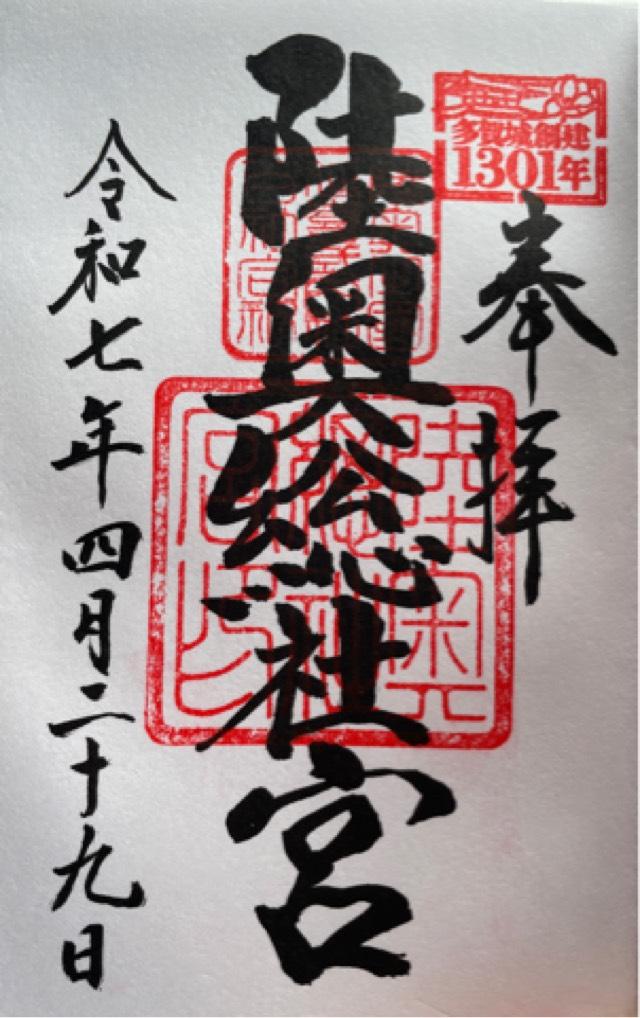 多賀城創建
1301年
奉拝
陸奥総社宮
令和七年四月二十九日